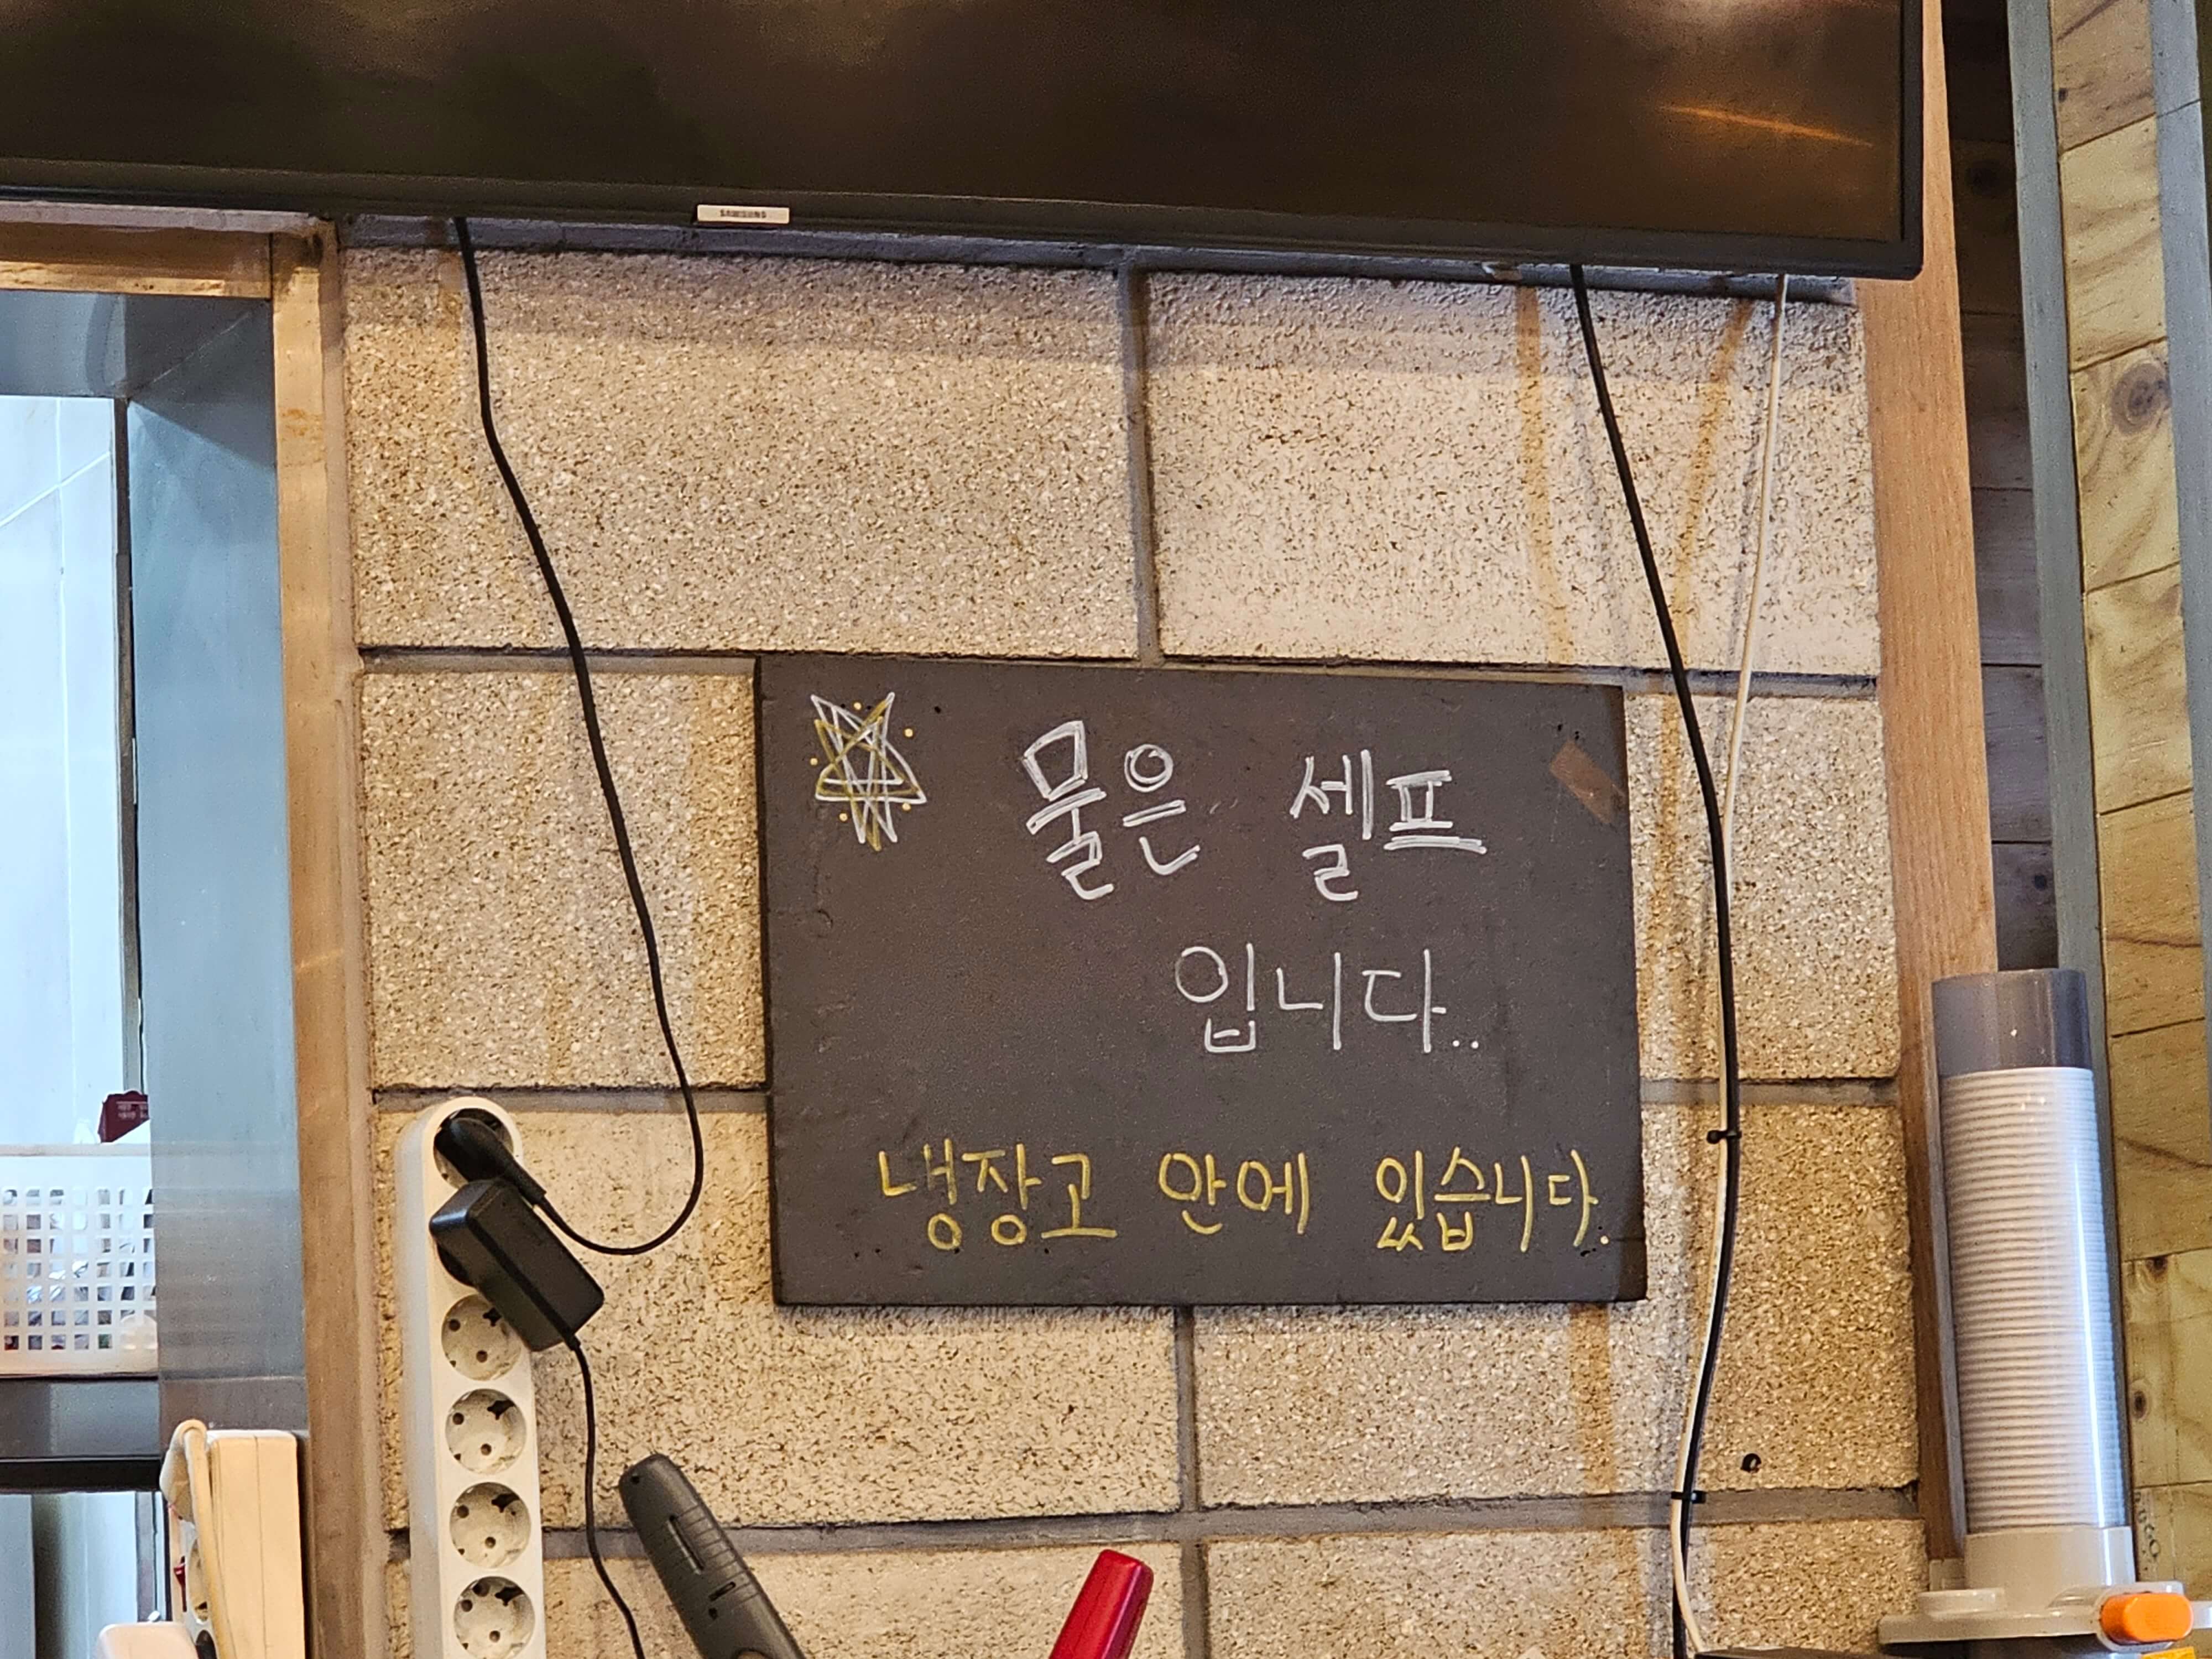 SAMSUNG
물은 셀프
입니다..
냉장고 안에 있습니다.